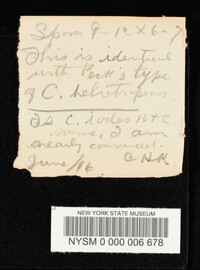 Spores 9-12 X 6-7
This is identical
with Peck's type
of C. heliotropicus.
Is C. iodes B+C.
same, I am
nearly convinced.
C H K
June/06
NEW YORK STATE MUSEUM
NYSM 0 000 006 678